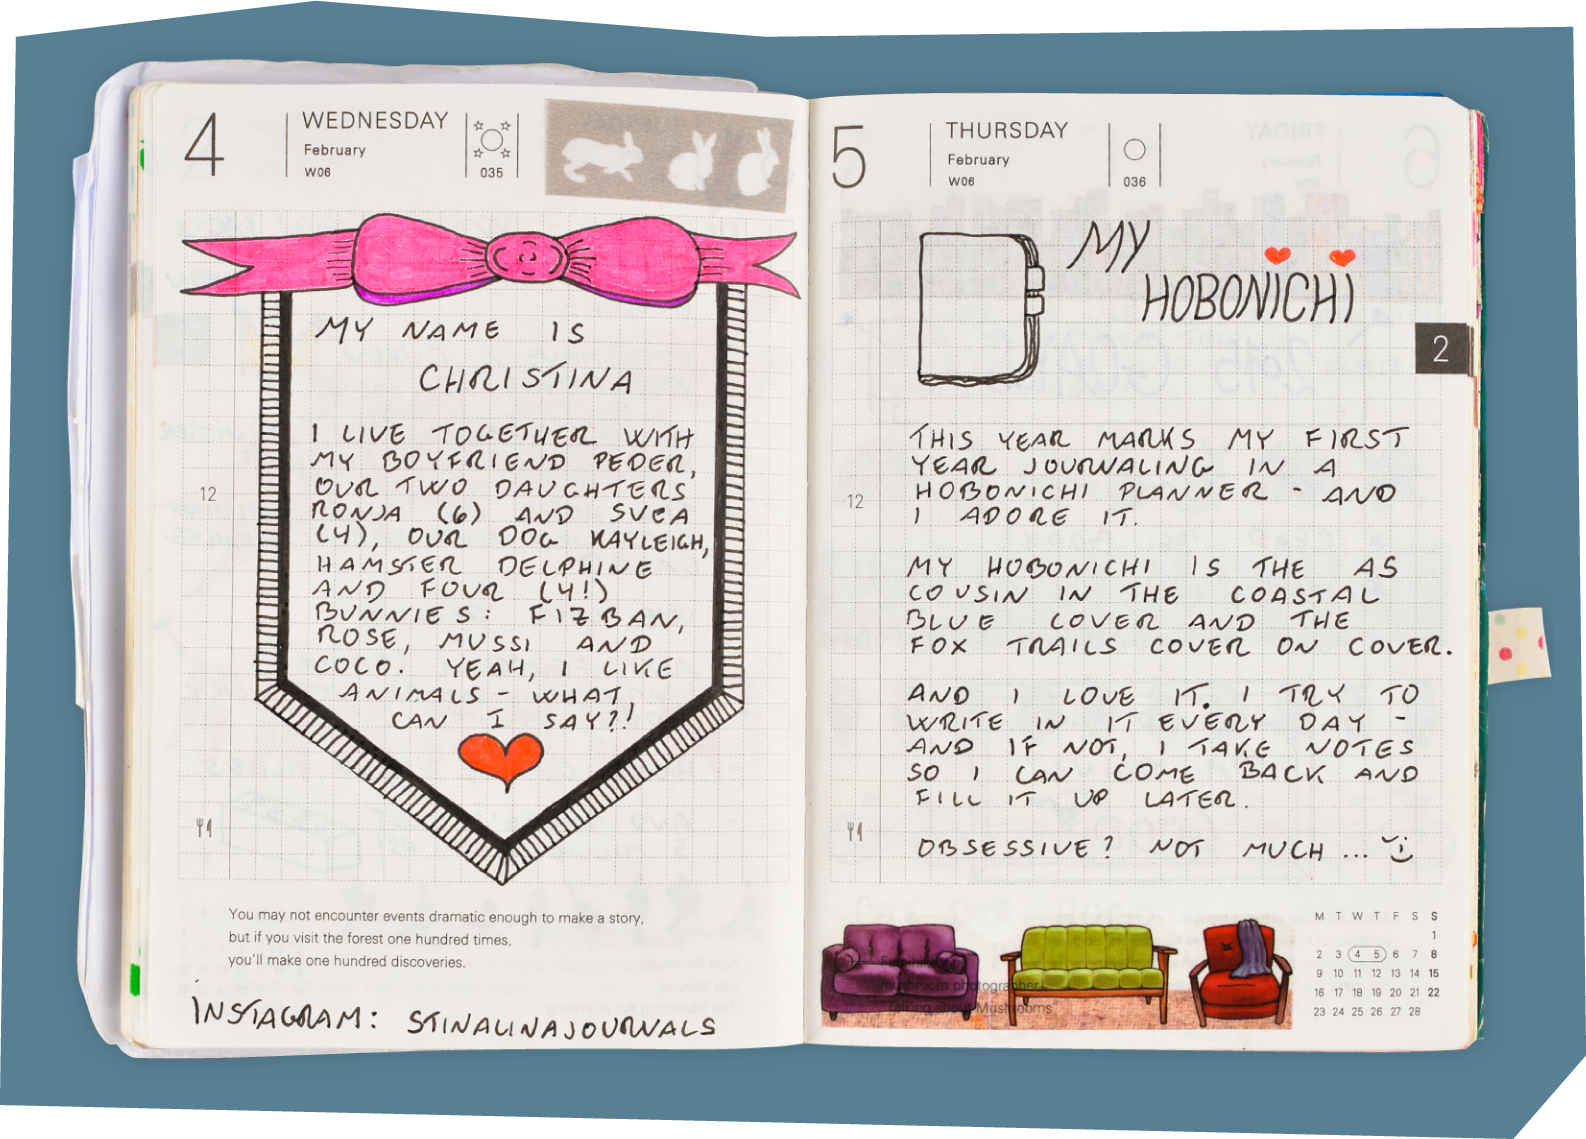 4
WEDNESDAY
February
W06
035
MY NAME IS
CHRISTINA
I LIVE TOGETHER WITH
MY BOYFRIEND PEDER,
OUR TWO DAUGHTERS
RONJA (6) AND SVEA
(4), OUR DOG KAYLEIGH,
HAMSTER DELPHINE
AND FOUR (4!)
BUNNIES: FIZBAN,
ROSE, MUSSI AND
COCO. YEAH, I LIKE
ANIMALS - WHAT
CAN I SAY?!
12
You may not encounter events dramatic enough to make a story,
but if you visit the forest one hundred times,
you'll make one hundred discoveries.
INSTAGRAM: STINALINAJOURNALS
5
THURSDAY
February
W06
036
MY
HOBONICHI
2
THIS YEAR MARKS MY FIRST
YEAR JOURNALING IN A
HOBONICHI PLANNER - AND
I ADORE IT.
12
MY HOBONICHI IS THE A5
COUSIN IN THE COASTAL
BLUE COVER AND THE
FOX TRAILS COVER ON COVER.
AND I LOVE IT. I TRY TO
WRITE IN IT EVERY DAY -
AND IF NOT, I TAKE NOTES
SO I CAN COME BACK AND
FILL IT UP LATER.
OBSESSIVE? NOT MUCH ...
mushroom photographer
"Talking about Mushrooms"
M T W T F S S
1
2 3 4 5 6 7 8
9 10 11 12 13 14 15
16 17 18 19 20 21 22
23 24 25 26 27 28